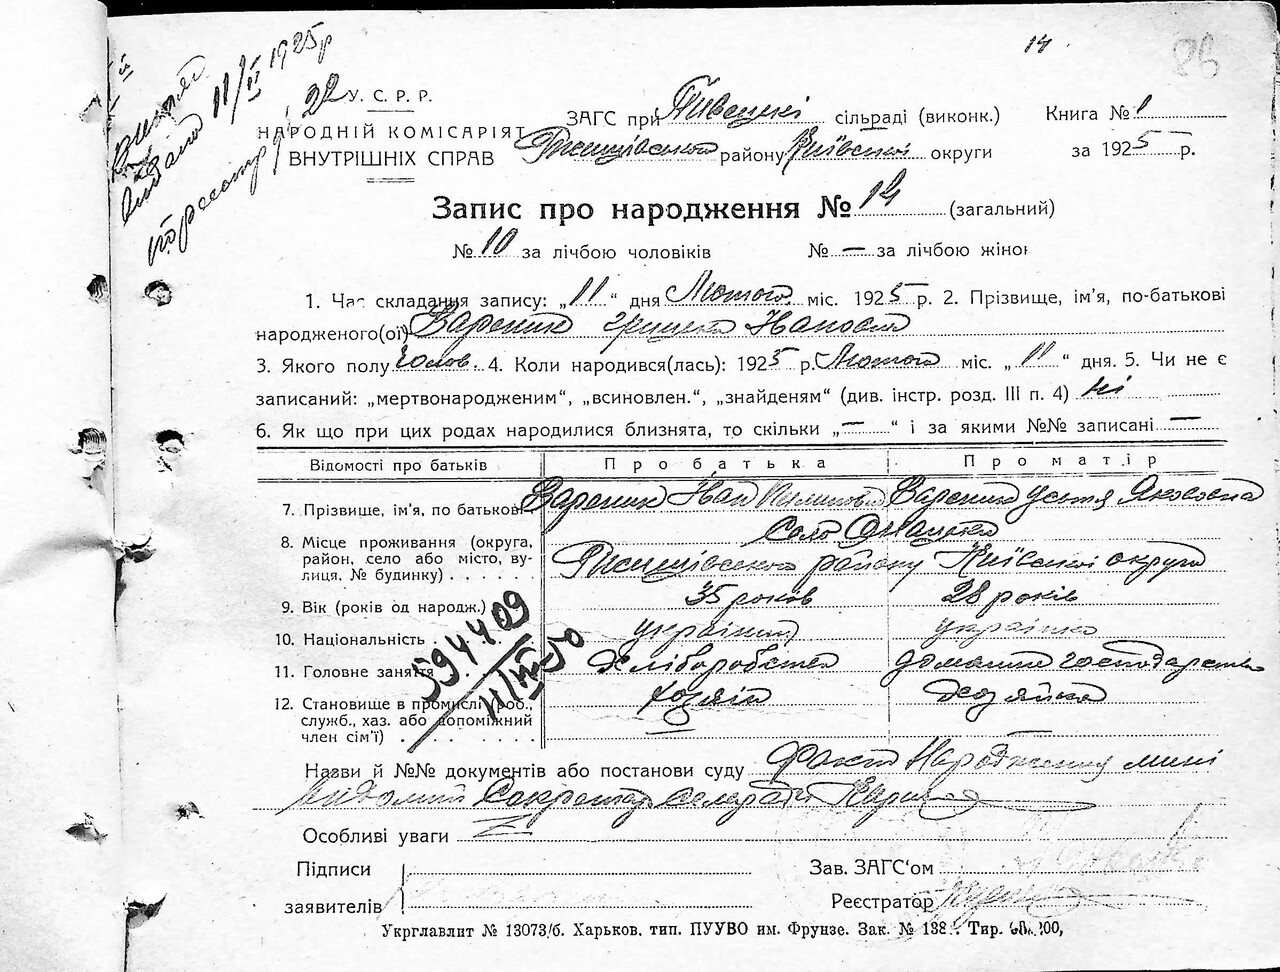 14
86
Витяг
видано 11/II 1925 р
по реєстру 22
У. С. Р. Р.
НАРОДНІЙ КОМІСАРІЯТ
ВНУТРІШНІХ СПРАВ
ЗАГС при Пивецкі сільраді (виконк.)
Ржищівського району Київської округи
Книга № 1
за 1925 р.
Запис про народження № 14 (загальний)
№ 10 за лічбою чоловіків № — за лічбою жінок
1. Час складання запису: „11“ дня Лютого міс. 1925 р. 2. Прізвище, ім'я, по-батькові
народженого(ої) Вареник Грицько Іванович
3. Якого полу чолов. 4. Коли народився(лась): 1925 р. Лютого міс. „11“ дня. 5. Чи не є
записаний: „мертвонародженим“, „всиновлен.“, „знайденям“ (див. інстр. розд. III п. 4) ні
6. Як що при цих родах народилися близнята, то скільки „—“ і за якими №№ записані —
Відомості про батьків Про батька Про матір
7. Прізвище, ім'я, по батькові Вареник Іван Вареник Устя Якововна
8. Місце проживання (округа, район, село або місто, вулиця, № будинку) Село
Ржищівського району Київської округи
9. Вік (років од народж.) 35 років 28 років
10. Національність українец українка
11. Головне заняття хліборобство домашнє господарство
12. Становище в промислі (роб., служб., хаз. або допоміжний член сім'ї) хозяїн хозяйка
594409
Назви й №№ документів або постанови суду Факт Народження мині
видомий Сокретар Сельради
Особливі уваги
Підписи
заявителів
Зав. ЗАГС'ом
Реєстратор
Укрглавлит № 13073/б. Харьков, тип. ПУУВО им. Фрунзе. Зак. №